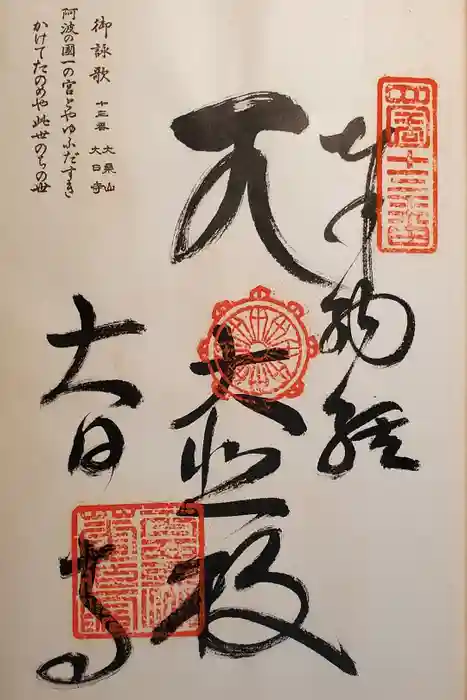 四國十三番
奉納経
大悲殿
大日寺
御詠歌 十三番 大栗山 大日寺
阿波の國一の宮とやゆふだすき
かけてたのめや此世のちの世